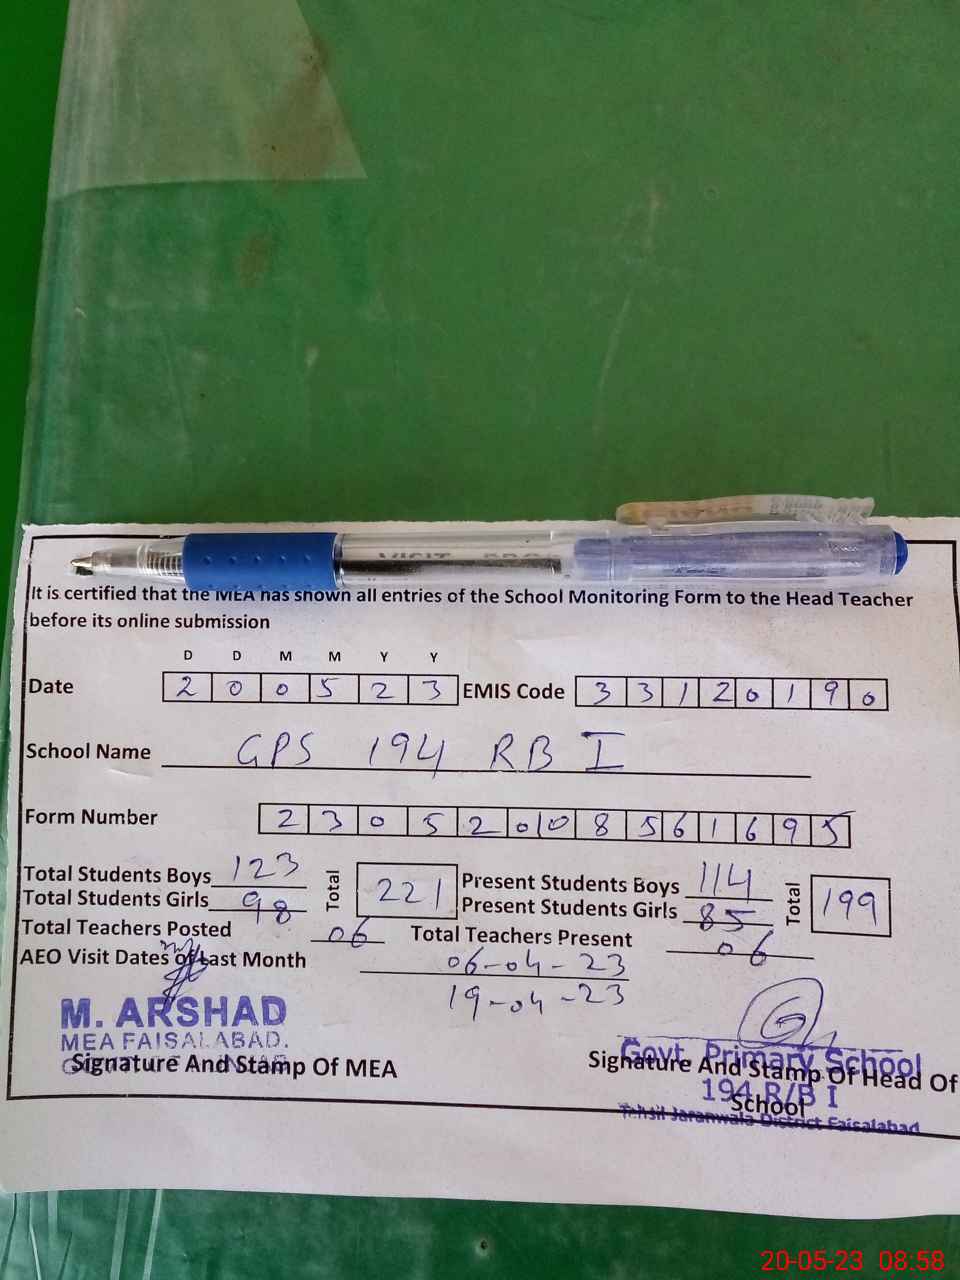 It is certified that the MEA has shown all entries of the School Monitoring Form to the Head Teacher
before its online submission
D D M M Y Y
Date 2 0 0 5 2 3 EMIS Code 3 3 1 2 0 1 9 0
School Name GPS 194 RB I
Form Number 2 3 0 5 2 0 0 8 5 6 1 6 9 5
Total Students Boys 123 Total 221 Present Students Boys 114 Total 199
Total Students Girls 98 Present Students Girls 85
Total Teachers Posted 06 Total Teachers Present 06
AEO Visit Dates of Last Month 06-04-23
19-04-23
M. ARSHAD
MEA FAISALABAD.
Signature And Stamp Of MEA
Govt. Primary School
Signature And Stamp Of Head Of
194 R/B I
School
Tehsil Jaranwala District Faisalabad
20-05-23 08:58